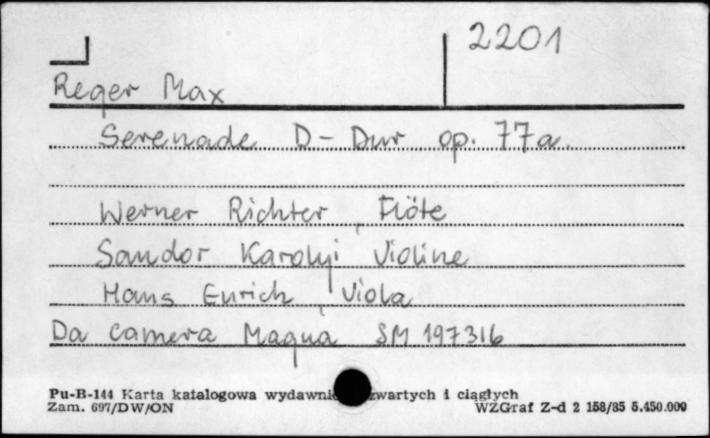 2201
Reger Max
Serenade D-Dur op. 77a.
Werner Richter, Flöte
Sandor Karolyi, Violine
Hans Eurich, Viola
Da Camera Magna SM 197316
Pu-B-144 Karta katalogowa wydawnic zwartych i ciągłych
Zam. 697/DW/ON WZGraf Z-d 2 158/85 5.450.000